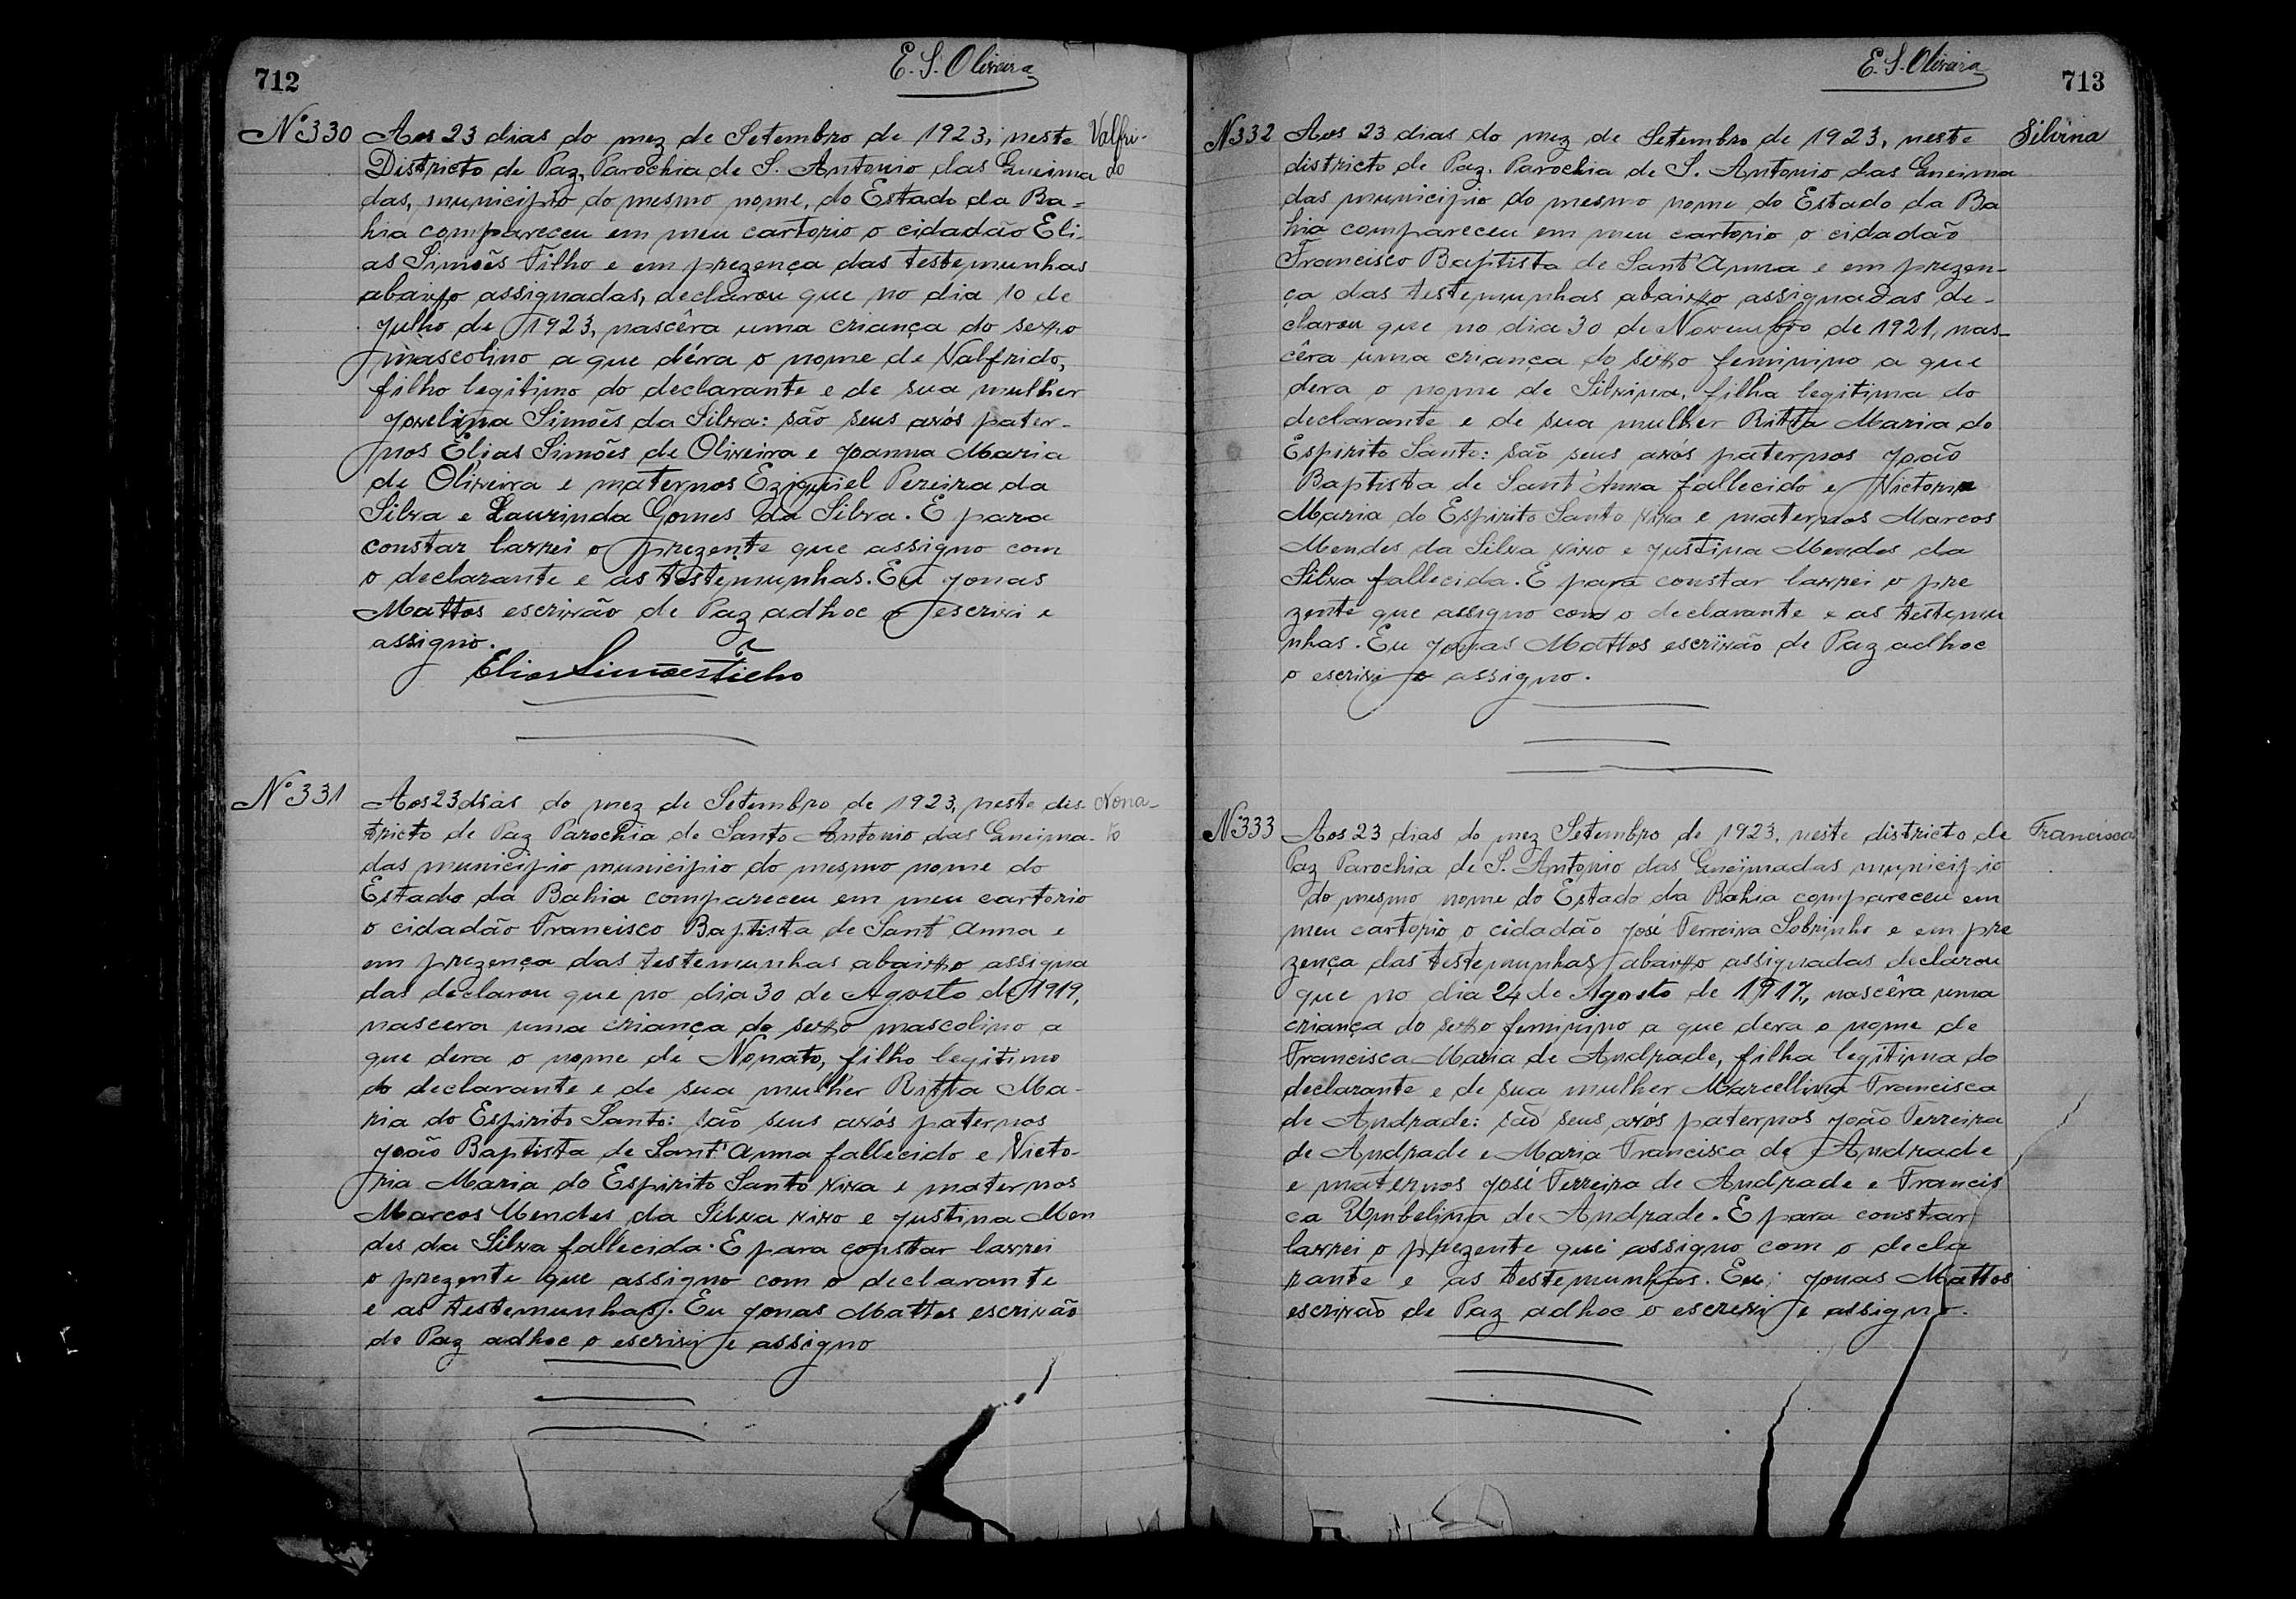 712
E. S. Oliveira
Nº 330
Valfri-
do
Aos 23 dias do mez de Setembro de 1923, neste
Districto de Paz, Parochia de S. Antonio das Queima
das, municipio do mesmo nome, do Estado da Ba-
hia compareceu em meu cartorio o cidadão Eli-
as Simoẽs Filho e em prezença das testemunhas
abaixo assignadas, declarou que no dia 10 de
Julho de 1923, nascêra uma criança do sexo
mascolino a que déra o nome de Valfrido,
filho legitimo do declarante e de sua mulher
Jovelina Simoẽs da Silva: são seus avós pater-
nos Elias Simoẽs de Oliveira e Joanna Maria
de Oliveira e maternos Eziquiel Pereira da
Silva e Laurinda Gomes da Silva. E para
constar lavrei o prezente que assigno com
o declarante e as testemunhas. Eu Jonas
Mattos escrivão de Paz adhoc o escrivi e
assigno.
Elias Simões Filho
Nº 331
Nona-
to
Aos 23 dias do mez de Setembro de 1923, neste dis-
tricto de Paz Parochia de Santo Antonio das Queima-
das municipio municipio do mesmo nome do
Estado da Bahia compareceu em meu cartorio
o cidadão Francisco Baptista de Sant'Anna e
em prezença das testemunhas abaixo assigna
das declarou que no dia 30 de Agosto de 1919,
nascera uma criança do sexo mascolino a
que dera o nome de Nonato, filho legitimo
do declarante e de sua mulher Ritta Ma-
ria do Espirito Santo: são seus avós paternos
João Baptista de Sant'Anna fallecido e Victo-
ria Maria do Espirito Santo viva e maternos
Marcos Mendes da Silva vivo e Justina Men
des da Silva fallecida. E para constar lavrei
o prezente que assigno com o declarante
e as testemunhas. Eu Jonas Mattos escrivão
de Paz adhoc o escrivi e assigno
E. S. Oliveira
713
N 332
Silvina
Aos 23 dias do mez de Setembro de 1923, neste
districto de Paz. Parochia de S. Antonio das Queima
das municipio do mesmo nome do Estado da Ba
hia compareceu em meu cartorio o cidadão
Francisco Baptista de Sant'Anna e em prezen-
ça das testemunhas abaixo assignadas de-
clarou que no dia 30 de Novembro de 1921, nas-
cêra uma criança do sexo feminino a que
dera o nome de Silvina, filha legitima do
declarante e de sua mulher Ritta Maria do
Espirito Santo: são seus avós paternos João
Baptista de Sant'Anna fallecido e Victoria
Maria do Espirito Santo viva e maternos Marcos
Mendes da Silva vivo e Justina Mendes da
Silva fallecida. E para constar lavrei o pre
zente que assigno com o declarante e as testemu
nhas. Eu Jonas Mattos escrivão de Paz adhoc
o escrivi e assigno.
N 333
Francisca
Aos 23 dias do mez Setembro de 1923, neste districto de
Paz Parochia de S. Antonio das Queimadas municipio
do mesmo nome do Estado da Bahia compareceu em
meu cartorio o cidadão José Ferreira Sobrinho e em pre
zença das testemunhas abaixo assignadas declarou
que no dia 24 de Agosto de 1917, nascêra uma
criança do sexo feminino a que dera o nome de
Francisca Maria de Andrade, filha legitima do
declarante e de sua mulher Marcellina Francisca
de Andrade: são seus avós paternos João Ferreira
de Andrade e Maria Francisca de Andrade
e maternos José Ferreira de Andrade e Francis
ca Umbelina de Andrade. E para constar
lavrei o prezente que assigno com o decla
rante e as testemunhas. Eu Jonas Mattos
escrivaõ de Paz adhoc o escrevi e assigno.